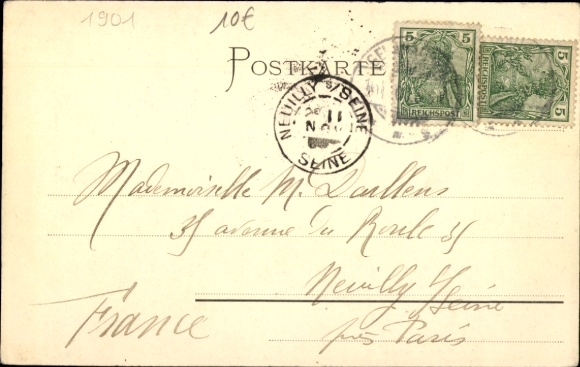 1901
10€
POSTKARTE
5 5
REICHSPOST
5 5
REICHSPOST
NEUILLY S/SEINE
11
NOV
SEINE
Mademoiselle M.
35 avenue du Roule 35
Neuilly s/Seine
près Paris
France